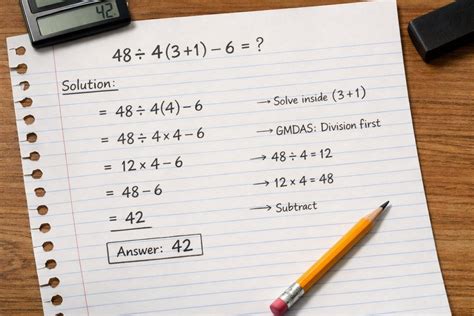 42
48 ÷ 4(3+1) − 6 = ?
Solution:
= 48 ÷ 4(4) − 6 → Solve inside (3+1)
= 48 ÷ 4 × 4 − 6 → GMDAS: Division first
= 12 × 4 − 6 → 48 ÷ 4 = 12
= 48 − 6 → 12 × 4 = 48
= 42 → Subtract
Answer: 42